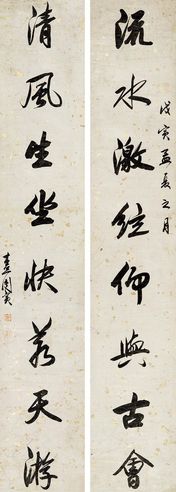 流水激弦仰與古會
戊寅孟夏之月
清風生坐快若天游